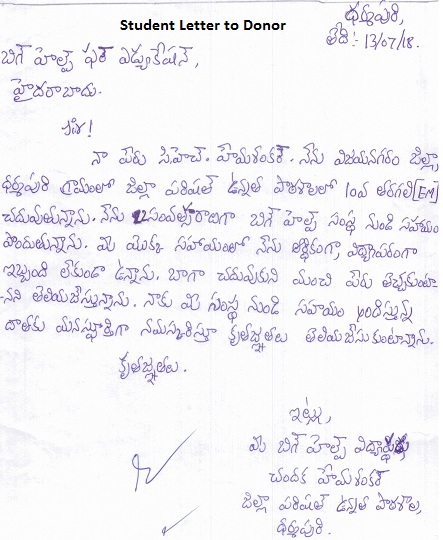 Student Letter to Donor
ధర్మపురి,
తేది:- 13/07/18.
బిగ్ హెల్ప్ ఫర్ ఎడ్యుకేషన్,
హైదరాబాదు.
సర్!
నా పేరు సిహెచ్. హేమశంకర్. నేను విజయనగరం జిల్లా,
ధర్మపురి గ్రామంలో జిల్లా పరిషత్ ఉన్నత పాఠశాలలో 10వ తరగతి [EM]
చదువుతున్నాను. నేను 2 సంవత్సరాలుగా బిగ్ హెల్ప్ సంస్థ నుండి సహాయం
పొందుతున్నాను. మీ యొక్క సహాయంలో నేను ఆర్థికంగా విద్యాపరంగా
ఇబ్బంది లేకుండా ఉన్నాను. బాగా చదువుకుని మంచి పేరు తెచ్చుకుంటా
-నని తెలియజేస్తున్నాను. నాకు మీ సంస్థ నుండి సహాయం అందిస్తున్న
దాతకు మనస్ఫూర్తిగా నమస్కరిస్తూ కృతజ్ఞతలు తెలియజేసుకుంటున్నాను.
కృతజ్ఞతలు.
ఇట్లు,
మీ బిగ్ హెల్ప్ విద్యార్థి
చందక హేమశంకర్
జిల్లా పరిషత్ ఉన్నత పాఠశాల,
ధర్మపురి.